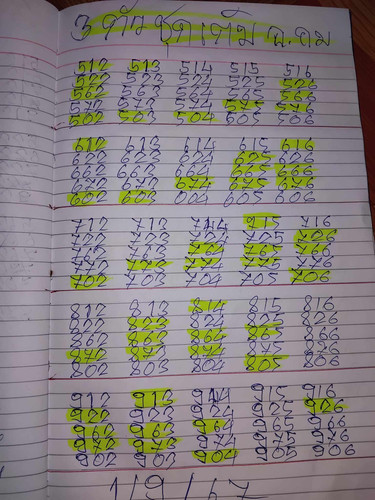 3 ตัว ชุดเต็ม
512 513 514 515 516
522 523 524 525 526
562 563 564 565 566
572 573 574 575 576
502 503 504 505 506
612 613 614 615 616
622 623 624 625 626
662 663 664 665 666
672 673 674 675 676
602 603 604 605 606
712 713 714 715 716
722 723 724 725 726
762 763 764 765 766
772 773 774 775 776
702 703 704 705 706
812 813 814 815 816
822 823 824 825 826
862 863 864 865 866
872 873 874 875 876
802 803 804 805 806
912 913 914 915 916
922 923 924 925 926
962 963 964 965 966
972 973 974 975 976
902 903 904 905 906
1/9/67